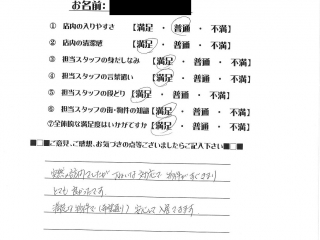 お名前:
① 店内の入りやすさ 【満足 ・ 普通 ・ 不満】
② 店内の清潔感 【満足 ・ 普通 ・ 不満】
③ 担当スタッフの身だしなみ 【満足 ・ 普通 ・ 不満】
④ 担当スタッフの言葉遣い 【満足 ・ 普通 ・ 不満】
⑤ 担当スタッフの段どり 【満足 ・ 普通 ・ 不満】
⑥ 担当スタッフの街・物件の知識 【満足 ・ 普通 ・ 不満】
⑦全体的な満足度はいかがですか 【満足 ・ 普通 ・ 不満】
ご意見、ご感想、お気づきの点等ございましたらご記入下さい
突然の訪問でしたが 対応で 物件が きまり
とても 良かったです
物件で（希望通り） 安心して 入居できます